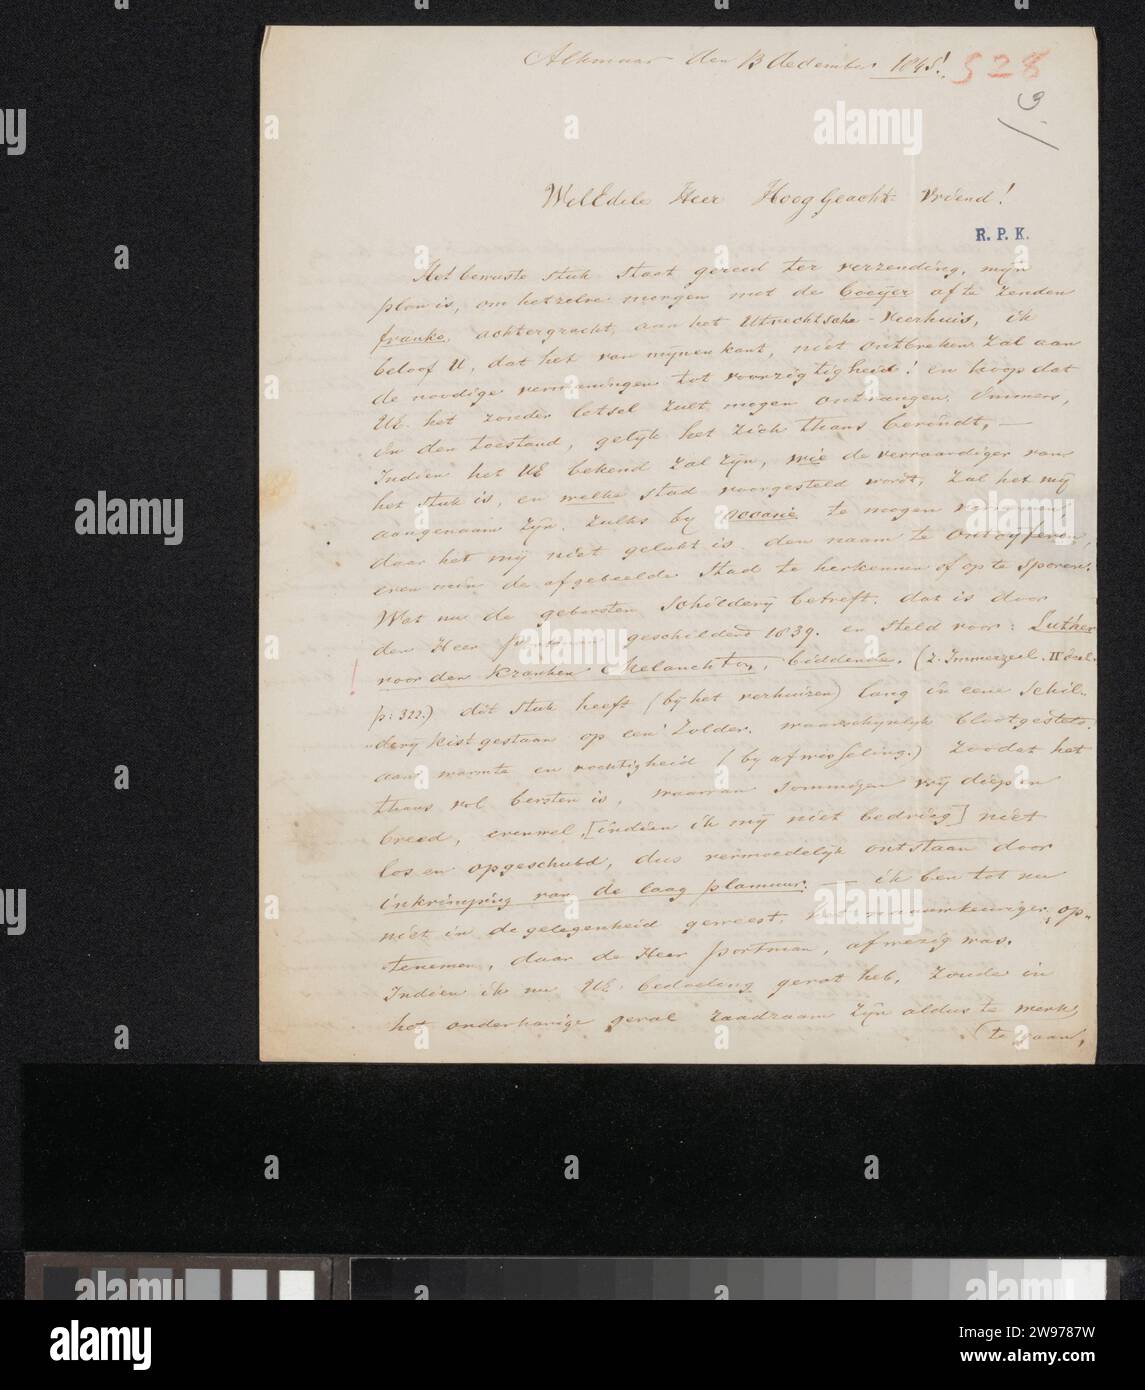 Alkmaar den 13 december 1845! 528
9
WelEdele Heer Hooggeacht Vriend!
R. P. K.
Het bewuste stuk staat gereed ter verzending, mijn
plan is, om hetzelve morgen met de boeijer af te zenden
franko, achtergracht, aan het Utrechtsche-Veerhuis, ik
beloof U, dat het van mijnen kant, niet ontbreken zal aan
de noodige vermaningen tot voorzigtigheid! en hoop dat
UE het zonder letsel zult mogen ontvangen. Immers,
in den toestand, gelijk het zich thans bevindt, —
Indien het UE bekend zal zijn, wie de vervaardiger van
het stuk is, en welke stad voorgesteld wordt, zal het mij
aangenaam zijn. zulks bij occasie te mogen vernemen
daar het mij niet gelukt is den naam te ontcijferen,
even min de afgebeelde stad te herkennen of op te sporen.
Wat nu de gebersten Schilderij betreft, dat is door
den Heer Portman geschilderd 1839. en steld voor: Luther
voor den kranken Melanchton, biddende. (z. Immerzeel. II deel.
p: 322.) dit stuk heeft (bij het verhuizen) lang in eene Schil-
derij kist gestaan op een Zolder. waarschijnlijk blootgesteld
aan warmte en vochtigheid (bij afwisseling.) zoodat het
thans vol bersten is, waarvan sommigen vrij diep en
breed, evenwel [indien ik mij niet bedrieg] niet
los en opgeschubd, dus vermoedelijk ontstaan door
inkrimping van de laag plamuur. — ik ben tot nu
niet in de gelegenheid geweest, het naauwkeuriger op-
tenemen, daar de Heer Portman, afwezig was.
Indien ik nu UE. bedoeling gevat heb, zoude in
het onderhavige geval raadzaam zijn aldus te werk
(te gaan,
alamy
Image ID: 2W9787W
www.alamy.com